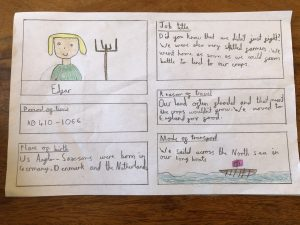 Edgar
Period of time
AD 410-1066
Place of birth
Us Anglo-Saxons were born in
Germany, Denmark and the Netherlands
Job title
Did you know that we didn't just fight?
We were also very skilled farmers. We
went home as soon as we could from
battle to tend to our crops.
Reason of travel
Our land often flooded and that meant
no crops wouldn't grow. We moved to
England for good
Mode of transport
We sailed across the North sea in
our long boats